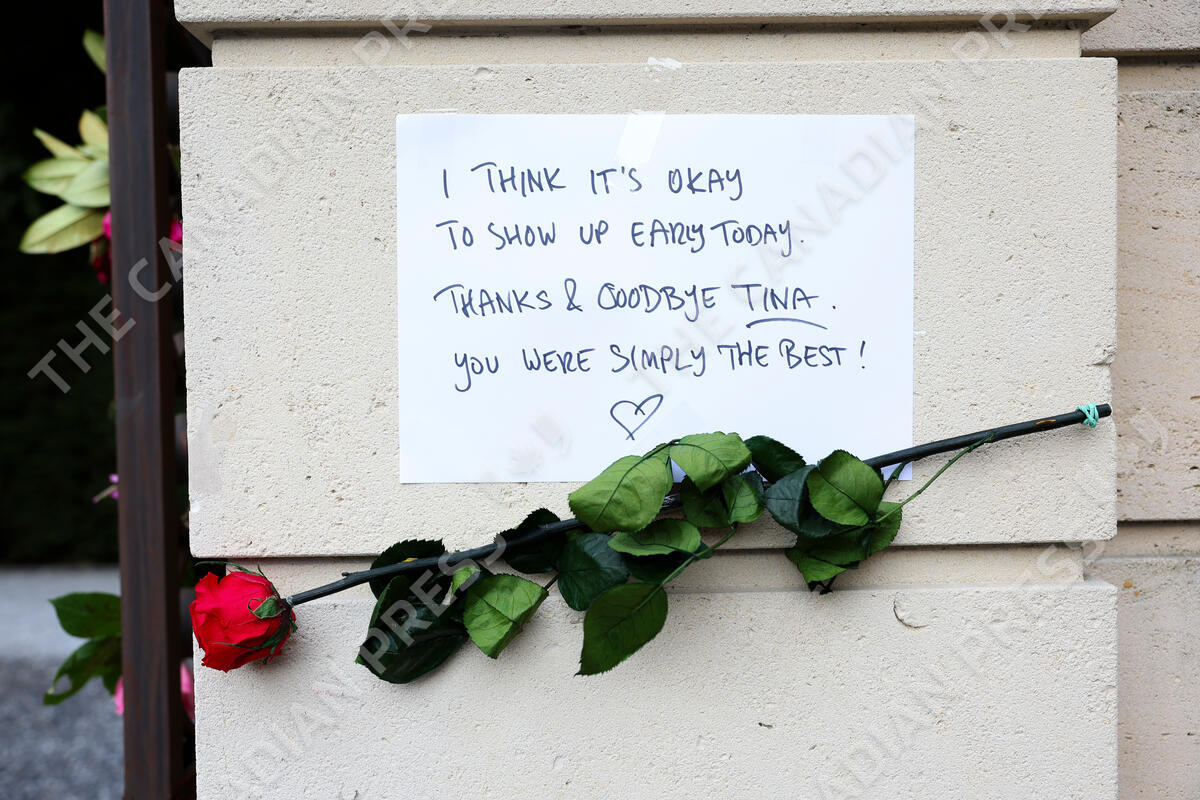 I THINK IT'S OKAY
TO SHOW UP EARLY TODAY.
THANKS & GOODBYE TINA.
YOU WERE SIMPLY THE BEST!
THE CANADIAN PRESS
THE CANADIAN PRESS
THE CANADIAN PRESS